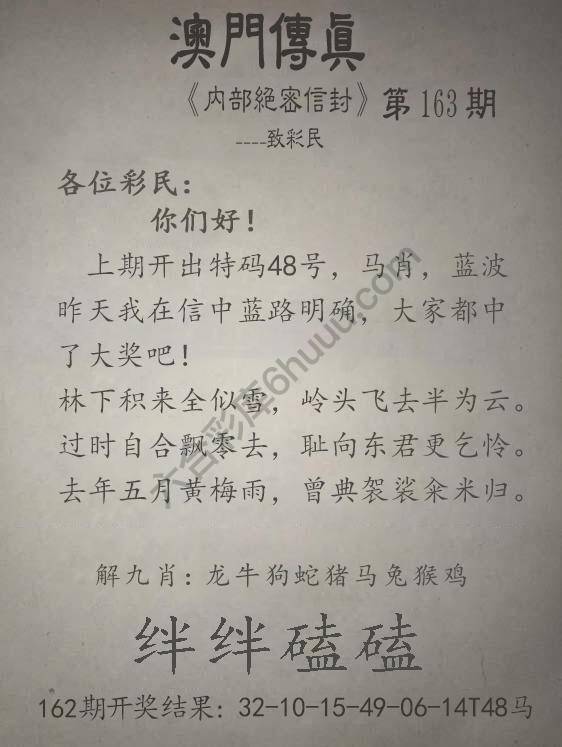 澳門傳真
《内部絕密信封》第163期
----致彩民
各位彩民：
你们好！
上期开出特码48号，马肖，蓝波
昨天我在信中蓝路明确，大家都中
了大奖吧！
林下积来全似雪，岭头飞去半为云。
过时自合飘零去，耻向东君更乞怜。
去年五月黄梅雨，曾典袈裟籴米归。
解九肖：龙牛狗蛇猪马兔猴鸡
绊绊磕磕
162期开奖结果：32-10-15-49-06-14T48马
六合彩库6huuu.com